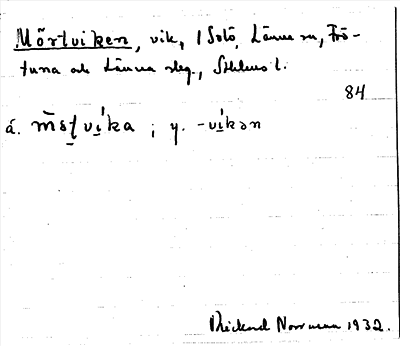 Mörtviken, vik, i Solö, Länna sn, Frö-
tuna och Länna slg., Sthlms l.
84
á. m̄s̱ṯvi̱ka ; y. -vi̱kən
Rickard Norrman 1932.